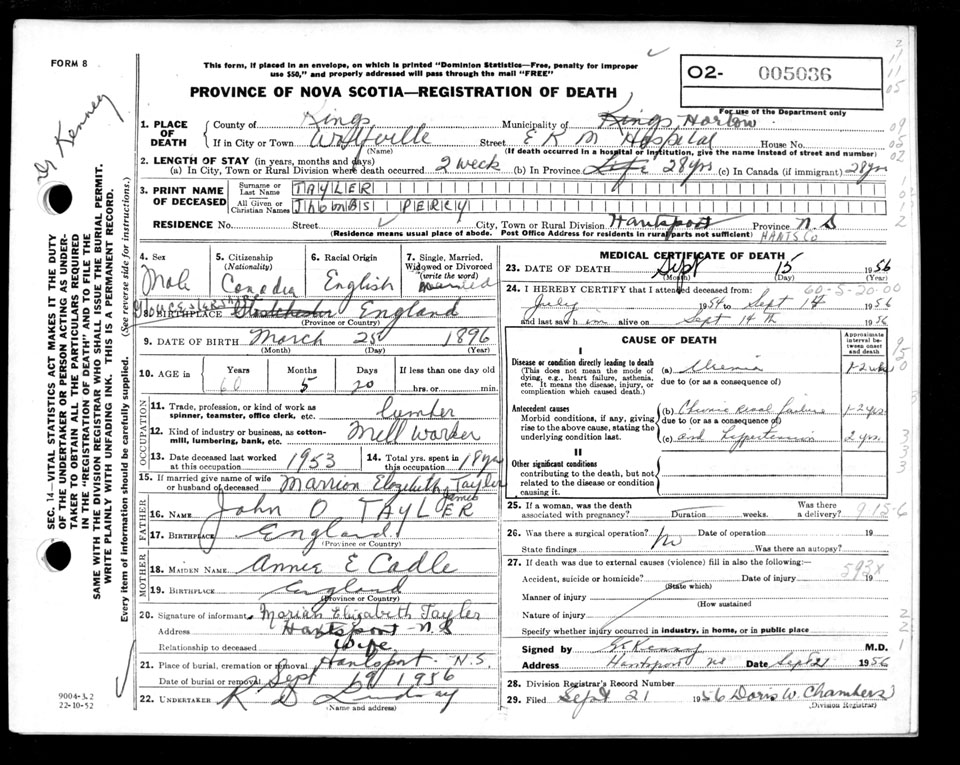 FORM 8
This form, if placed in an envelope, on which is printed "Dominion Statistics—Free, penalty for improper
use $50," and properly addressed will pass through the mail "FREE"
O2- 005036
PROVINCE OF NOVA SCOTIA—REGISTRATION OF DEATH
For use of the Department only
Dr Kenney
1. PLACE OF DEATH
County of Kings Municipality of Kings, Horton
If in City or Town Wolfville Street E K M Hospital House No.
(Name) (If death occurred in a hospital or institution, give the name instead of street and number)
2. LENGTH OF STAY (in years, months and days)
(a) In City, Town or Rural Division where death occurred 2 week (b) In Province Life 28 yrs (c) In Canada (if immigrant) 28 yrs
3. PRINT NAME OF DECEASED
Surname or Last Name TAYLER
All Given or Christian Names PERRY
RESIDENCE No. Street City, Town or Rural Division Hantsport Province N.S
(Residence means usual place of abode. Post Office Address for residents in rural parts not sufficient) HANTS CO
SEC. 14—VITAL STATISTICS ACT MAKES IT THE DUTY
OF THE UNDERTAKER OR PERSON ACTING AS UNDER-
TAKER TO OBTAIN ALL THE PARTICULARS REQUIRED
IN THE "REGISTRATION OF DEATH" AND TO FILE THE
SAME WITH THE DIVISION REGISTRAR WHO SHALL ISSUE THE BURIAL PERMIT.
WRITE PLAINLY WITH UNFADING INK. THIS IS A PERMANENT RECORD.
Every item of information should be carefully supplied. (See reverse side for instructions.)
4. Sex Male
5. Citizenship (Nationality) Canadia
6. Racial Origin English
7. Single, Married, Widowed or Divorced (write the word) married
8. BIRTHPLACE England
(Province or Country)
9. DATE OF BIRTH March 25 1896
(Month) (Day) (Year)
10. AGE in Years Months Days If less than one day old
60 5 20 hrs. or min.
OCCUPATION
11. Trade, profession, or kind of work as spinner, teamster, office clerk, etc. lumber
12. Kind of industry or business, as cotton-mill, lumbering, bank, etc. Mill Worker
13. Date deceased last worked at this occupation 1953
14. Total yrs. spent in this occupation 18 yrs
15. If married give name of wife or husband of deceased Marrion Elizabeth Tayler
FATHER
16. NAME John O James TAYLER
17. BIRTHPLACE England
(Province or Country)
MOTHER
18. MAIDEN NAME Annie E Cadle
19. BIRTHPLACE England
(Province or Country)
20. Signature of informant Marian Elizabeth Tayler
Address Hantsport N S
Relationship to deceased Wife
21. Place of burial, cremation or removal Hantsport N.S.
Date of burial or removal Sept 1956
22. UNDERTAKER R D Lindsay
(Name and address)
9004-3.2
22-10-52
MEDICAL CERTIFICATE OF DEATH
23. DATE OF DEATH Sept 15 1956
(Month) (Day)
60-5-20-00
24. I HEREBY CERTIFY that I attended deceased from
July 1954 to Sept 14 1956
and last saw him alive on Sept 14th 1956
CAUSE OF DEATH
Approximate interval between onset and death
I
Disease or condition directly leading to death
(This does not mean the mode of dying, e.g., heart failure, asthenia, etc. It means the disease, injury, or complication which caused death.)
(a) Uremia 1-2 wks
due to (or as a consequence of)
Antecedent causes
Morbid conditions, if any, giving rise to the above cause, stating the underlying condition last.
(b) Chronic renal failure 1-2 yrs.
due to (or as a consequence of)
(c) and Hypertension 2 yrs.
II
Other significant conditions
contributing to the death, but not related to the disease or condition causing it.
25. If a woman, was the death associated with pregnancy? Duration weeks. Was there a delivery? 915-6
26. Was there a surgical operation? No Date of operation 19
State findings Was there an autopsy?
27. If death was due to external causes (violence) fill in also the following:— 593X
Accident, suicide or homicide? Date of injury 19
(State which)
Manner of injury
(How sustained
Nature of injury
Specify whether injury occurred in industry, in home, or in public place
Signed by Kenney M.D.
Address Hantsport NS Date Sept 21 1956
28. Division Registrar's Record Number
29. Filed Sept 21 1956 Doris W. Chambers
(Division Registrar)